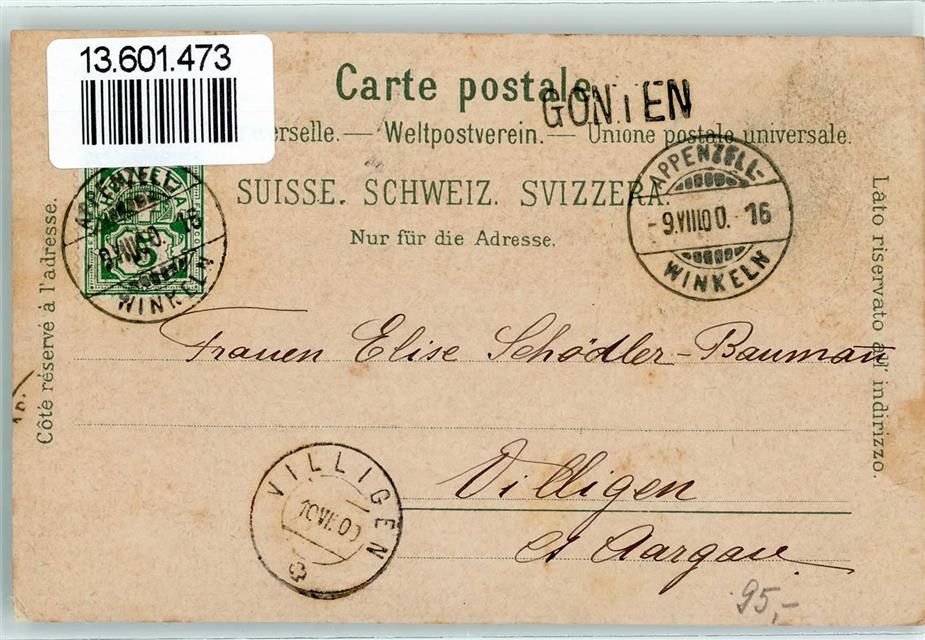 13.601.473
Carte postale.
GONTEN
erselle. — Weltpostverein. — Unione postale universale.
SUISSE. SCHWEIZ. SVIZZERA.
Nur für die Adresse.
Côté réservé à l'adresse.
Lato riservato all' indirizzo.
APPENZELL-
9.VIII.00. 16
WINKELN
APPENZELL-
9.VIII.00. 16
WINKELN
HELVETIA
5
Frauen Elise Schödler-Bauman
Villigen
Ct Aargau.
VILLIGEN
10 VIII 00
95,-